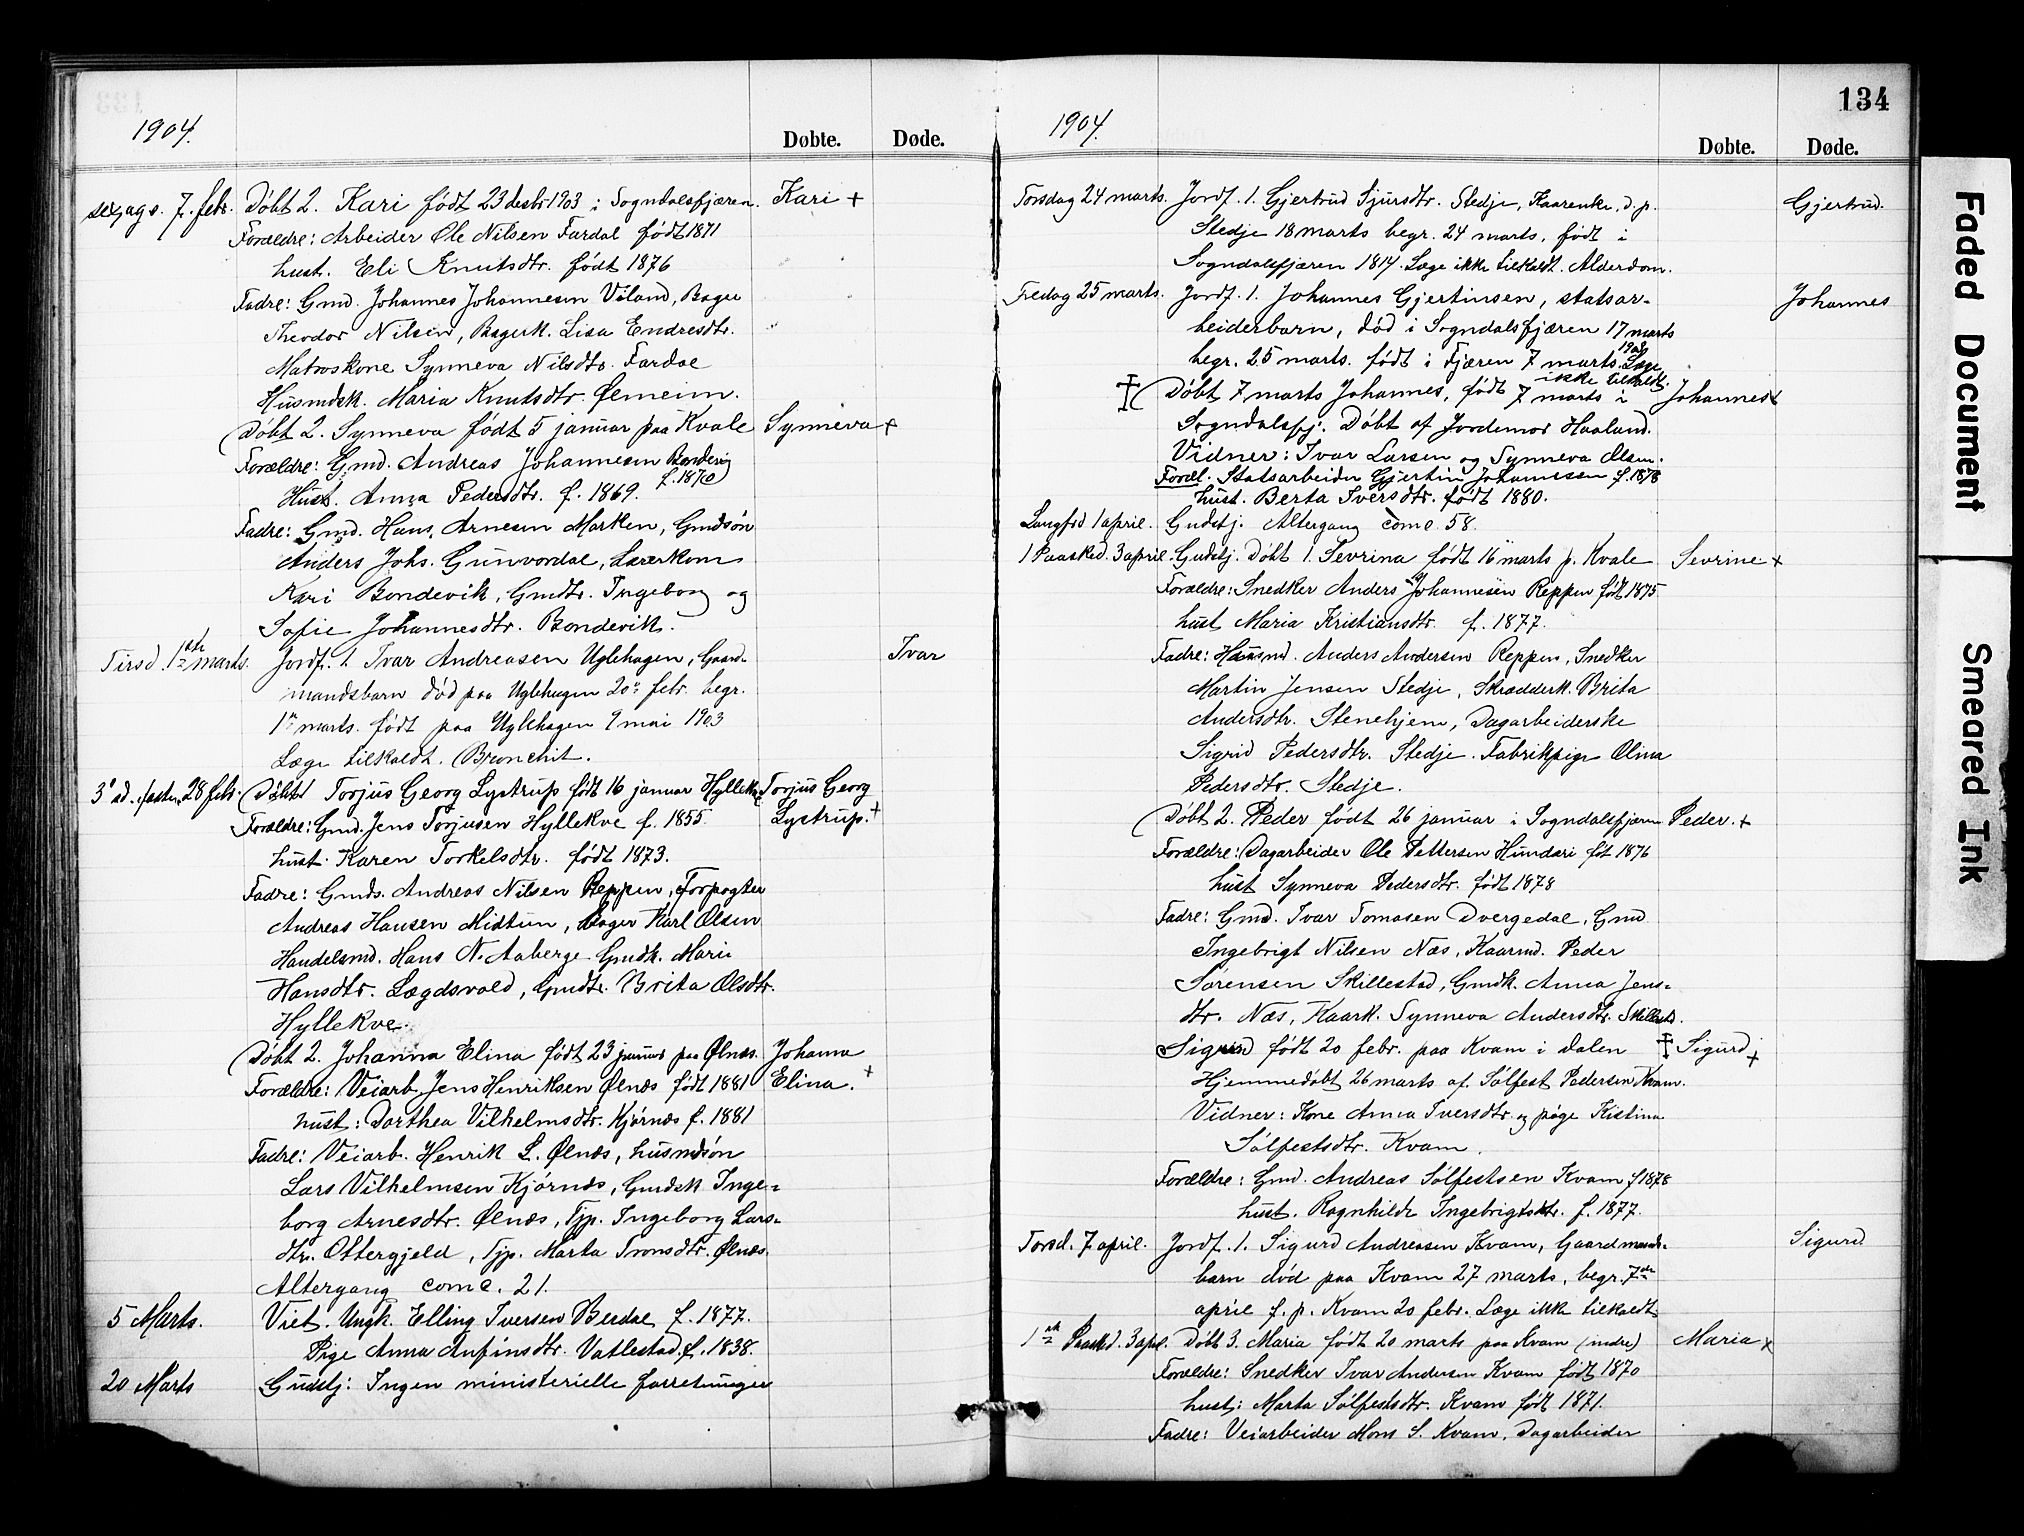 1904.
Døbte.
Døde.
sexags. 7. febr. Døbt 2. Kari født 23 desbr 1903 i Sogndalsfjæren. Kari +
Forældre: Arbeider Ole Nilsen Fardal født 1871
hust. Eli Knutsdtr. født 1876
Fadre: Gmd. Johannes Johannesen Viland, Bager
Theodor Nilsen, Bagerk. Lisa Endresdtr.
Matroskone Synneva Nilsdtr. Fardal
Husmdsk. Maria Knutsdtr. Ølmeim.
Døbt 2. Synneva født 5 januar paa Kvale Synneva +
Forældre: Gmd. Andreas Johannesen Bondevig
f. 1870
Hust. Anna Pedersdtr. f. 1869.
Fadre: Gmd. Hans Arnesen Marken, Gmdsøn
Anders Johs. Gunvordal, Lærerkone
Kari Bondevik, Gmdtr. Ingeborg og
Sofie Johannesdtr. Bondevik.
Tirsd. 1ste marts. Jordf. 1. Ivar Andreasen Uglehagen, Gaard- Ivar
mandsbarn død paa Uglehagen 20de febr. begr.
1ste marts. født paa Uglehagen 9 mai 1903
Læge tilkaldt. Bronchit.
3die s. i fasten 28 febr. Døbt 1 Torjus Georg Lystrup født 16 januar Hyllekve Torjus Georg
Forældre: Gmd. Jens Torjusen Hyllekve f. 1855. Lystrup. +
hust. Karen Torkelsdtr. født 1873.
Fadre: Gmds. Andreas Nilsen Reppen, Forpagter
Andreas Hansen Midtun, Bager Karl Olsen
Handelsmd. Hans N. Aaberge Gmdk. Mari
Hansdtr. Lægdsvold, Gmdtr. Brita Olsdtr.
Hyllekve.
Døbt 2. Johanna Elina født 23 januar paa Ølnæs. Johanna
Forældre: Veiarb. Jens Henriksen Ølnæs født 1881 Elina. +
hust: Dorthea Vilhelmsdtr. Kjørnæs f. 1881
Fadre: Veiarb. Henrik L. Ølnæs, husmdsøn
Lars Vilhelmsen Kjørnæs, Gmdsk Inge-
borg Arnesdtr. Ølnæs, Tjp. Ingeborg Lars-
dtr. Ottergjeld, Tjp. Marta Tronsdtr. Ølnæs.
Altergang comc. 21.
5 Marts. Viet. Ungk. Elling Iversen Berdal f. 1877.
Pige Anna Anfinsdtr. Vatlestad f. 1838.
20 Marts Gudstj: Ingen ministerielle forretninger
134
1904.
Døbte.
Døde.
Torsdag 24 marts. Jordf. 1. Gjertrud Sjursdtr. Stedje, Kaarenke. d. p. Gjertrud.
Stedje 18 marts begr. 24 marts, født i
Sogndalsfjæren 1814. Læge ikke tilkaldt. Alderdom.
Fredag 25 marts. Jordf. 1. Johannes Gjertinsen, statsar- Johannes
beiderbarn, død i Sogndalsfjæren 17 marts
begr. 25 marts. født i Fjæren 7 marts 1904 Læge
ikke tilkaldt.
Døbt 7 marts Johannes, født 7 marts i Johannes +
Sogndalsfj. Døbt af Jordemor Haaland.
Vidner: Ivar Larsen og Synneva Olsen.
Foræl. Statsarbeider Gjertin Johannessen f. 1878
hust. Berta Iversdtr. født 1880.
Langfrd 1 april. Gudstj. Altergang comc. 58.
1 Paasked. 3 april. Gudstj. Døbt 1. Sevrina født 16 marts p. Kvale Sevrine +
Forældre: Snedker Anders Johannesen Reppen født 1875
hust Maria Kristiansdtr. f. 1877.
Fadre: Husmd. Anders Andersen Reppen, Snedker
Martin Jensen Stedje, Skrædderk. Brita
Andersdtr. Stenehjem, Dagarbeiderske
Sigrid Pedersdtr. Stedje. Fabrikpige Olina
Pedersdtr. Stedje.
Døbt 2. Peder født 26 januar i Sogndalsfjæren Peder. +
Forældre: Dagarbeider Ole Pettersen Hundari føt 1876
hust Synneva Pedersdtr. født 1878
Fadre: Gmd. Ivar Tomasen Dvergedal, Gmd.
Ingebrigt Nilsen Næs, Kaarmd. Peder
Sørensen Skillestad, Gmdk. Anna Jens-
dtr. Næs, Kaark. Synneva Andersdtr. Skillestd.
Sigurd født 20 febr. paa Kvam i dalen Sigurd +
Hjemmedøbt 26 marts af Sølfest Pedersen Kvam.
Vidner: Kone Anna Iversdtr. og pige Kistina
Sølfestsdtr. Kvam.
Forældre: Gmd. Andreas Sølfestsen Kvam f 1878
hust. Ragnhilde Ingebrigtsdtr. f. 1877.
Torsd. 7 april. Jordf. 1. Sigurd Andreasen Kvam, Gaardmands- Sigurd
barn død paa Kvam 27 marts, begr. 7de
april f. p. Kvam 20 febr. Læge ikke tilkaldt.
1ste Paaskd. 3 apl. Døbt 3. Maria født 20 marts paa Kvam (indre) Maria +
Forældre: Snedker Ivar Andersen Kvam født 1870
hust: Marta Sølfestsdtr. Kvam født 1871.
Fadre: Veiarbeider Mons S. Kvam, Dagarbeider
Faded Document
Smeared Ink